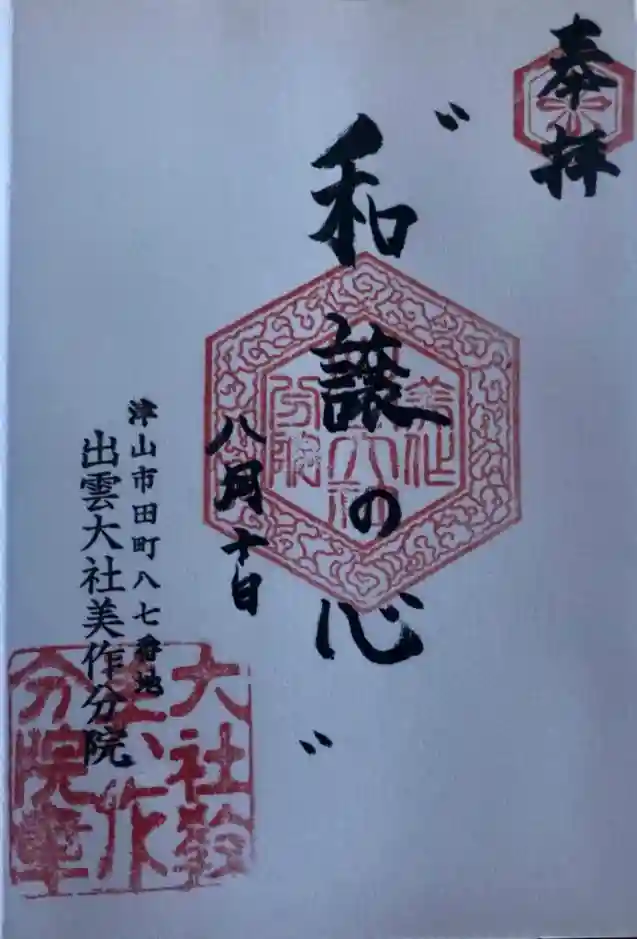 奉拝
〃和譲の心〃
八月十日
津山市田町八七番地
出雲大社美作分院
美作
大社
分院
大社教
美作
分院章